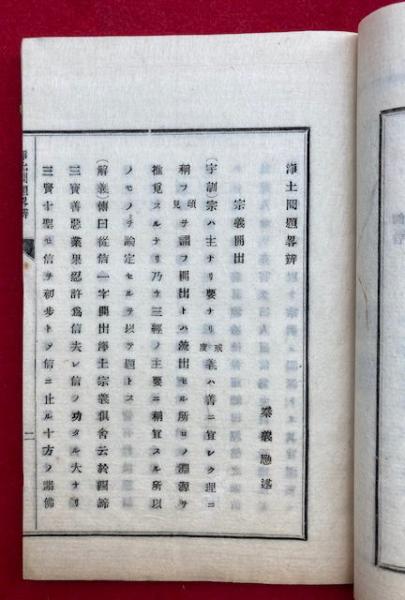 淨土問題畧辨
秦義應述
宗義開出
(字訓)宗ハ主ナリ要ナリ 義ハ善ニ宜シク理ニ
稱フヲ謂フ開出トハ流出セル所ロノ淵源ヲ
推覓スルナリ乃チ三經ノ主要ニ稱宜スル所以
ノモノヲ論定セルヲ以テ題トス
(解義)傳曰從信一字開出淨土宗義俱舍云於四諦
三寶善惡業果忍許爲信夫レ信ノ功タル大ナリ
三賢十聖モ信ヲ初步トシ信ニ止ル十方ノ諸佛
淨土問題畧辨
一